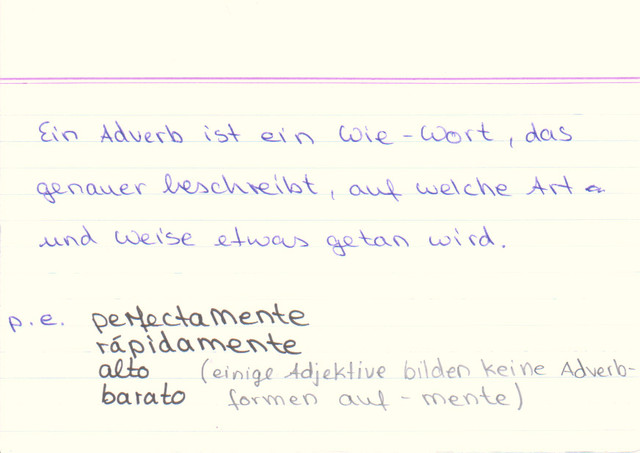 Ein Adverb ist ein Wie-Wort, das
genauer beschreibt, auf welche Art
und Weise etwas getan wird.
p.e. perfectamente
rápidamente
alto (einige Adjektive bilden keine Adverb-
barato formen auf -mente)